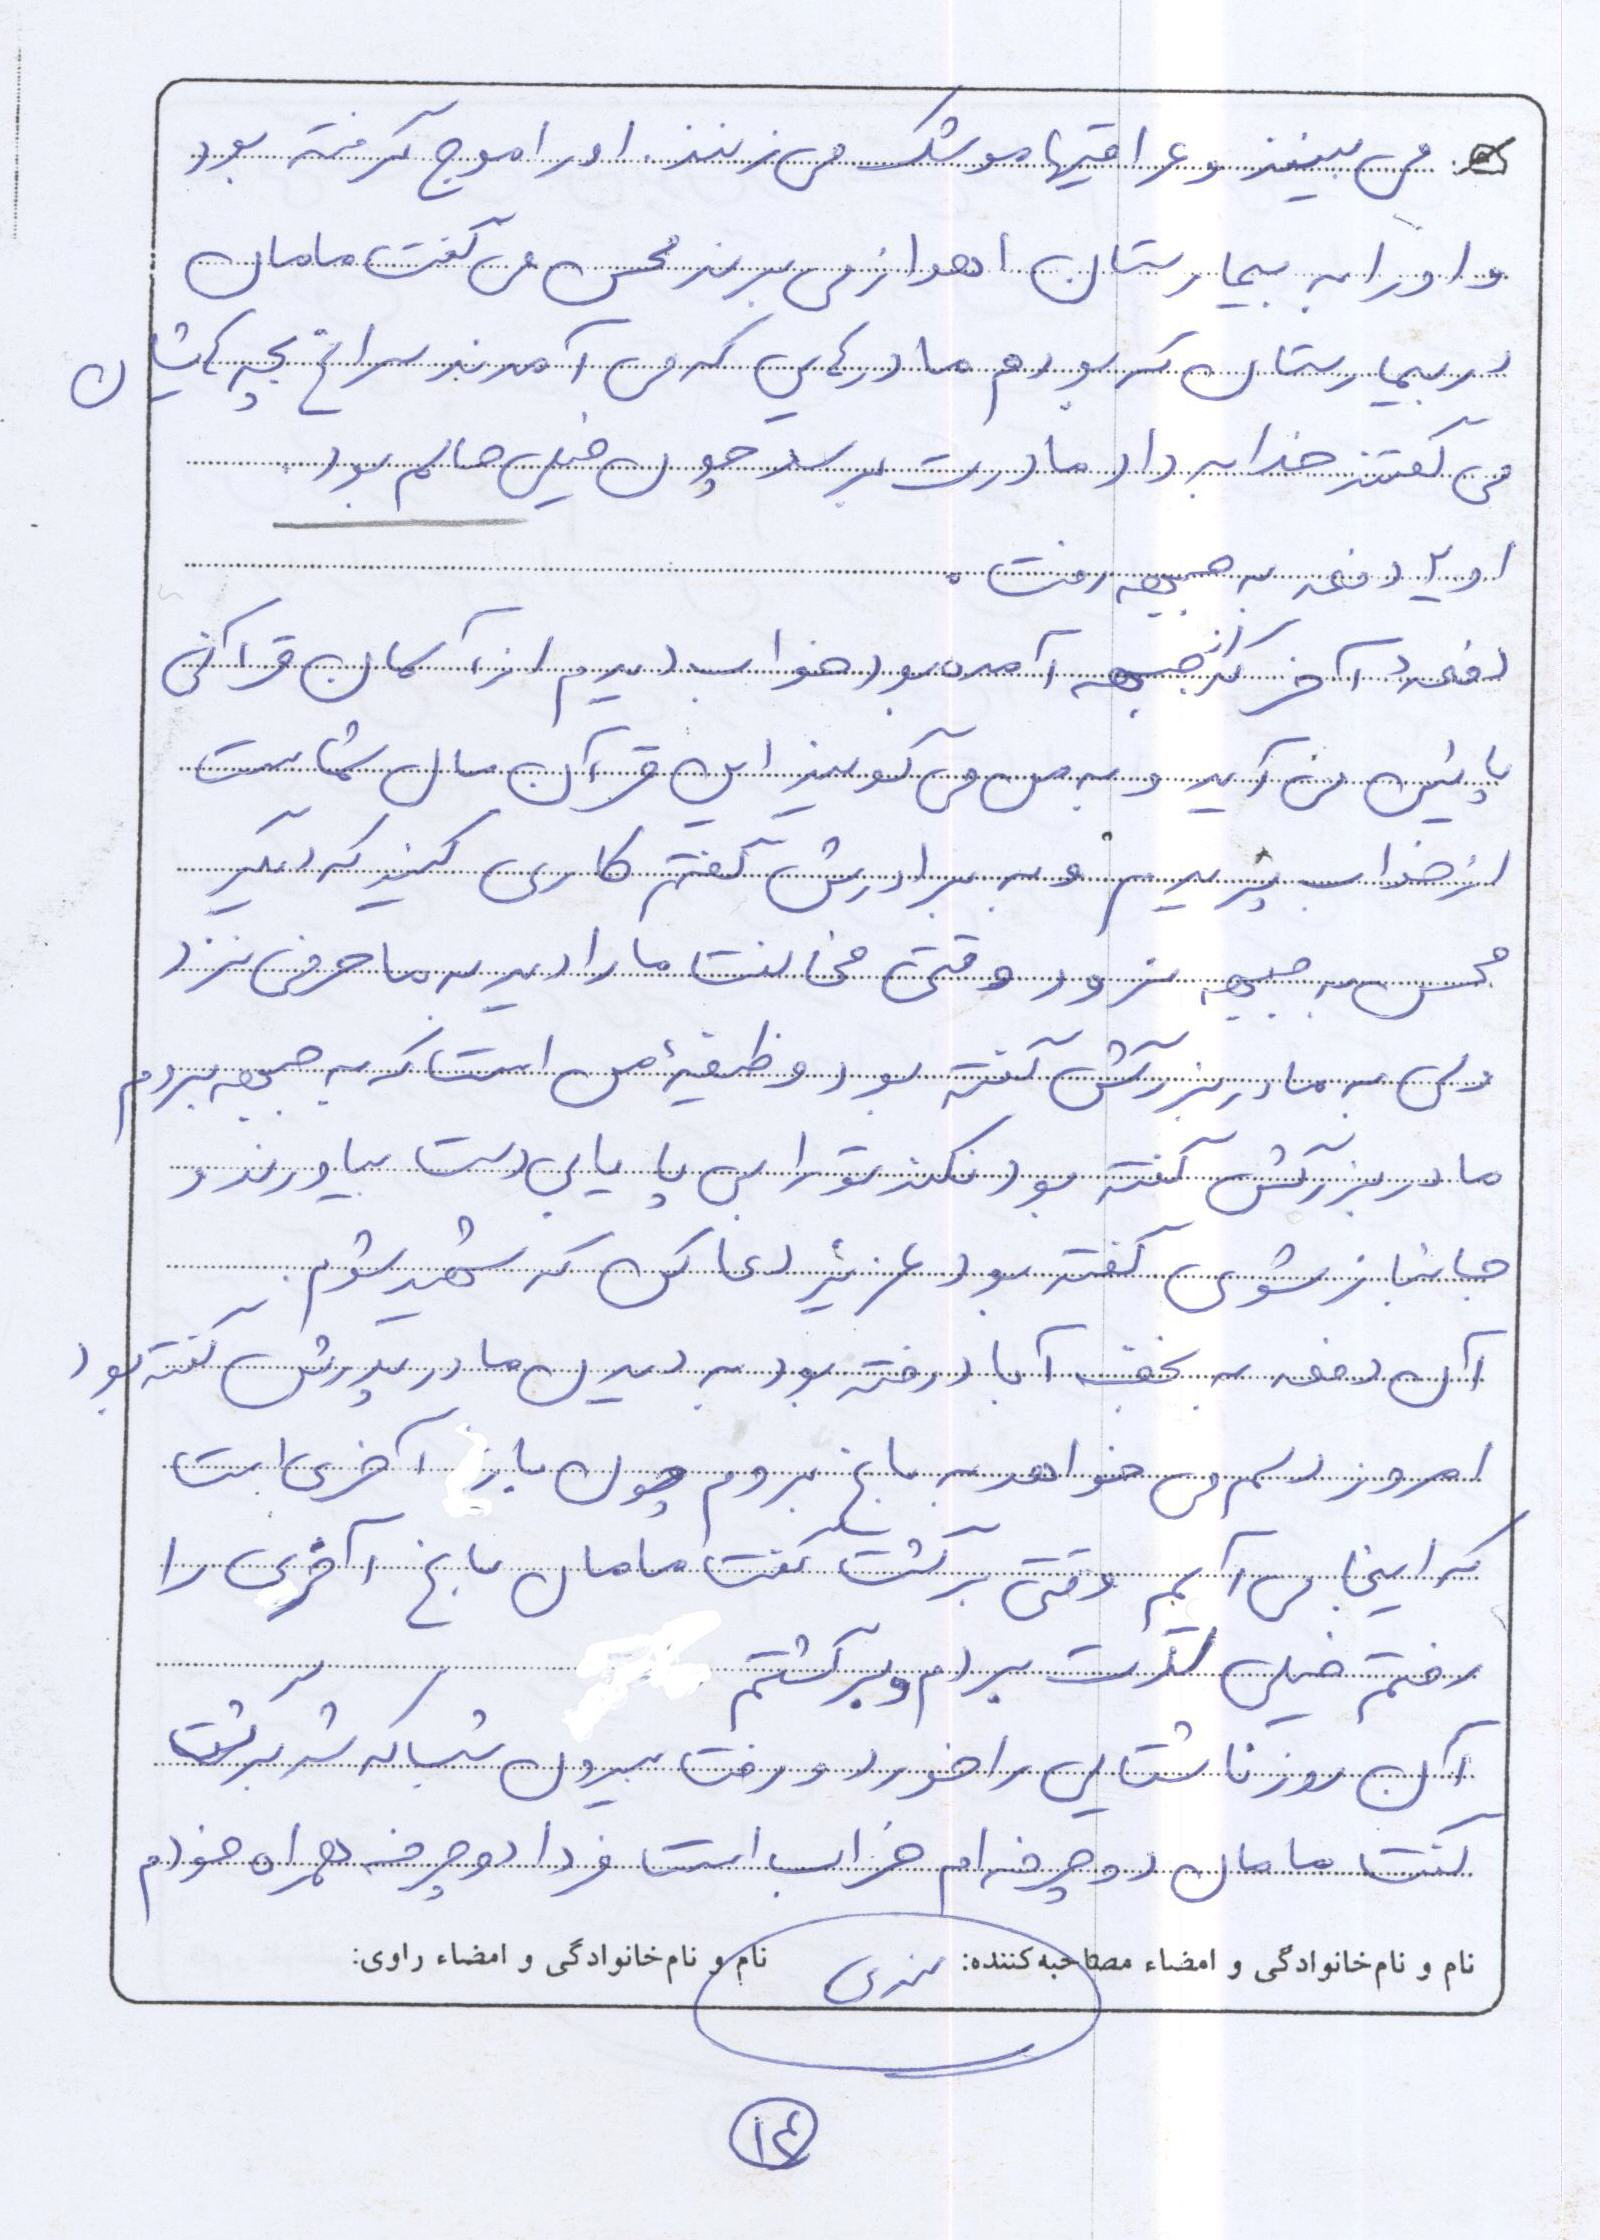 می بینند و عراقیها موشک می زنند. او را موج گرفته بود
و او را به بیمارستان اهواز می برند محسن می گفت مامان
در بیمارستان که بودم مادرهایی که می آمدند سراغ بچه هایشان
می گفتند خدا به داد مادرت برسد چون خیلی حالم بد بود.
او ۷ دفعه به جبهه رفت.
دفعه آخر که از جبهه آمده بود خواب دیدم از آسمان قرآنی
پائین می آید و به من می گویند این قرآن مال شماست
از خواب پریدم و به برادرش گفتم کاری کنید که دیگر
محسن به جبهه نرود وقتی مخالفت ما را دید به ما حرفی نزد
ولی به مادربزرگش گفته بود وظیفهٔ من است که به جبهه بروم
مادربزرگش گفته بود نکند تو را بی پا یا بی دست بیاورند و
جانباز شوی گفته بود عزیز دعا کن که شهید شوم.
آن دفعه به نجف آباد رفته بود به دیدن مادر پدرش گفته بود
امروز دلم می خواهد به باغ بروم چون بار آخری است
که اینجا می آیم وقتی برگشت گفت مامان باغ آخری را
رفتم خیلی لذت بردم و برگشتم
آن روز ناشتایی را خورد و رفت بیرون شب که شد برگشت
گفت مامان دوچرخه ام خراب است فردا دوچرخه همراه خودم
نام و نام خانوادگی و امضاء مصاحبه کننده: نام و نام خانوادگی و امضاء راوی:
۱۴